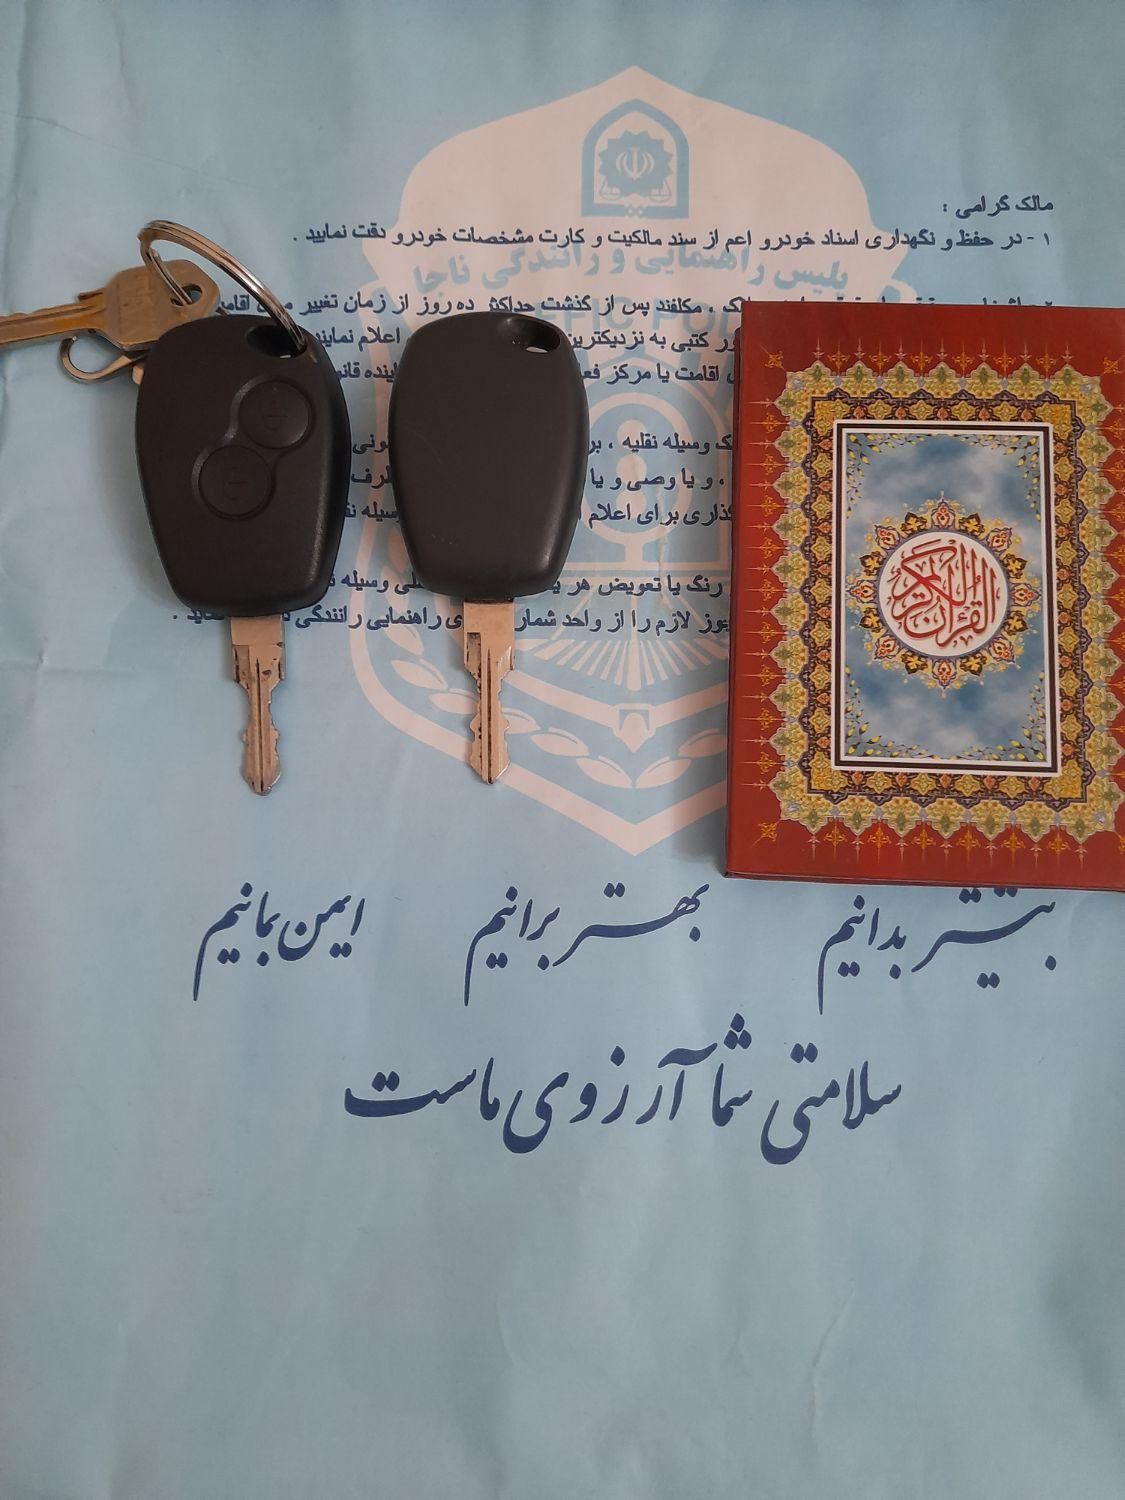 مالک گرامی :
۱ - در حفظ و نگهداری اسناد خودرو اعم از سند مالکیت و کارت مشخصات خودرو دقت نمایید .
پلیس راهنمایی و رانندگی ناجا
، مکلفند پس از گذشت حداکثر ده روز از زمان تغییر
کتبی به نزدیکترین اعلام نمایند
اقامت یا مرکز
وسیله نقلیه ،
، و یا وصی و یا
گذاری برای اعلام وسیله
رنگ یا تعویض هر وسیله
لازم را از واحد راهنمایی رانندگی
القرآن الكريم
بیشتر بدانیم بهتر برانیم ایمن بمانیم
سلامتی شما آرزوی ماست